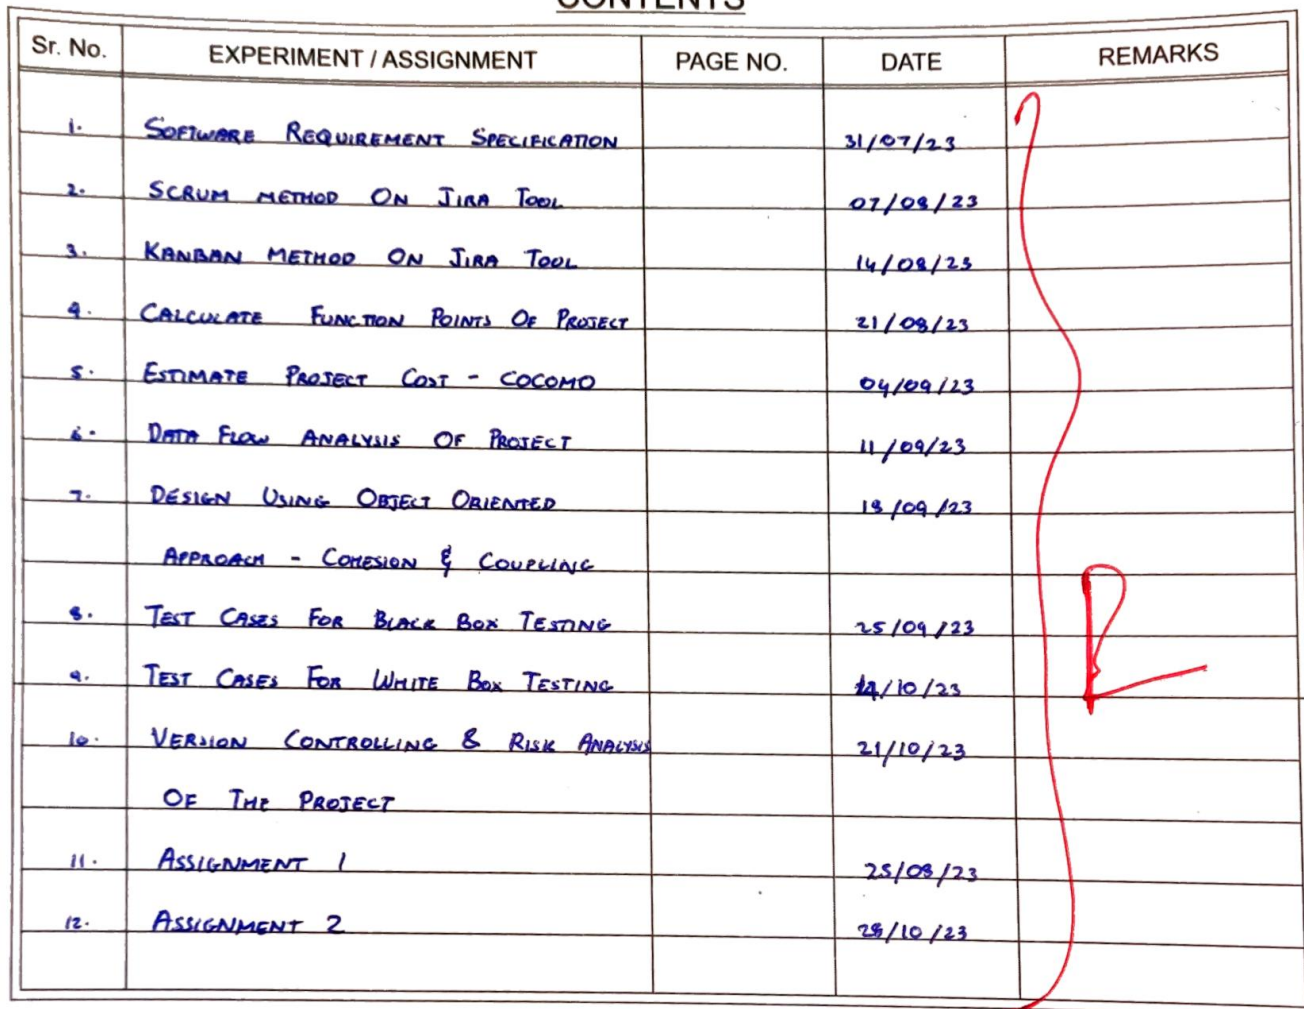 CONTENTS
Sr. No. EXPERIMENT / ASSIGNMENT PAGE NO. DATE REMARKS
1. SOFTWARE REQUIREMENT SPECIFICATION 31/07/23
2. SCRUM METHOD ON JIRA TOOL 07/08/23
3. KANBAN METHOD ON JIRA TOOL 14/08/23
4. CALCULATE FUNCTION POINTS OF PROJECT 21/08/23
5. ESTIMATE PROJECT COST - COCOMO 04/09/23
6. DATA FLOW ANALYSIS OF PROJECT 11/09/23
7. DESIGN USING OBJECT ORIENTED 18/09/23
APPROACH - COHESION & COUPLING
8. TEST CASES FOR BLACK BOX TESTING 25/09/23
9. TEST CASES FOR WHITE BOX TESTING /10/23
10. VERSION CONTROLLING & RISK ANALYSIS 21/10/23
OF THE PROJECT
11. ASSIGNMENT 1 25/08/23
12. ASSIGNMENT 2 28/10/23